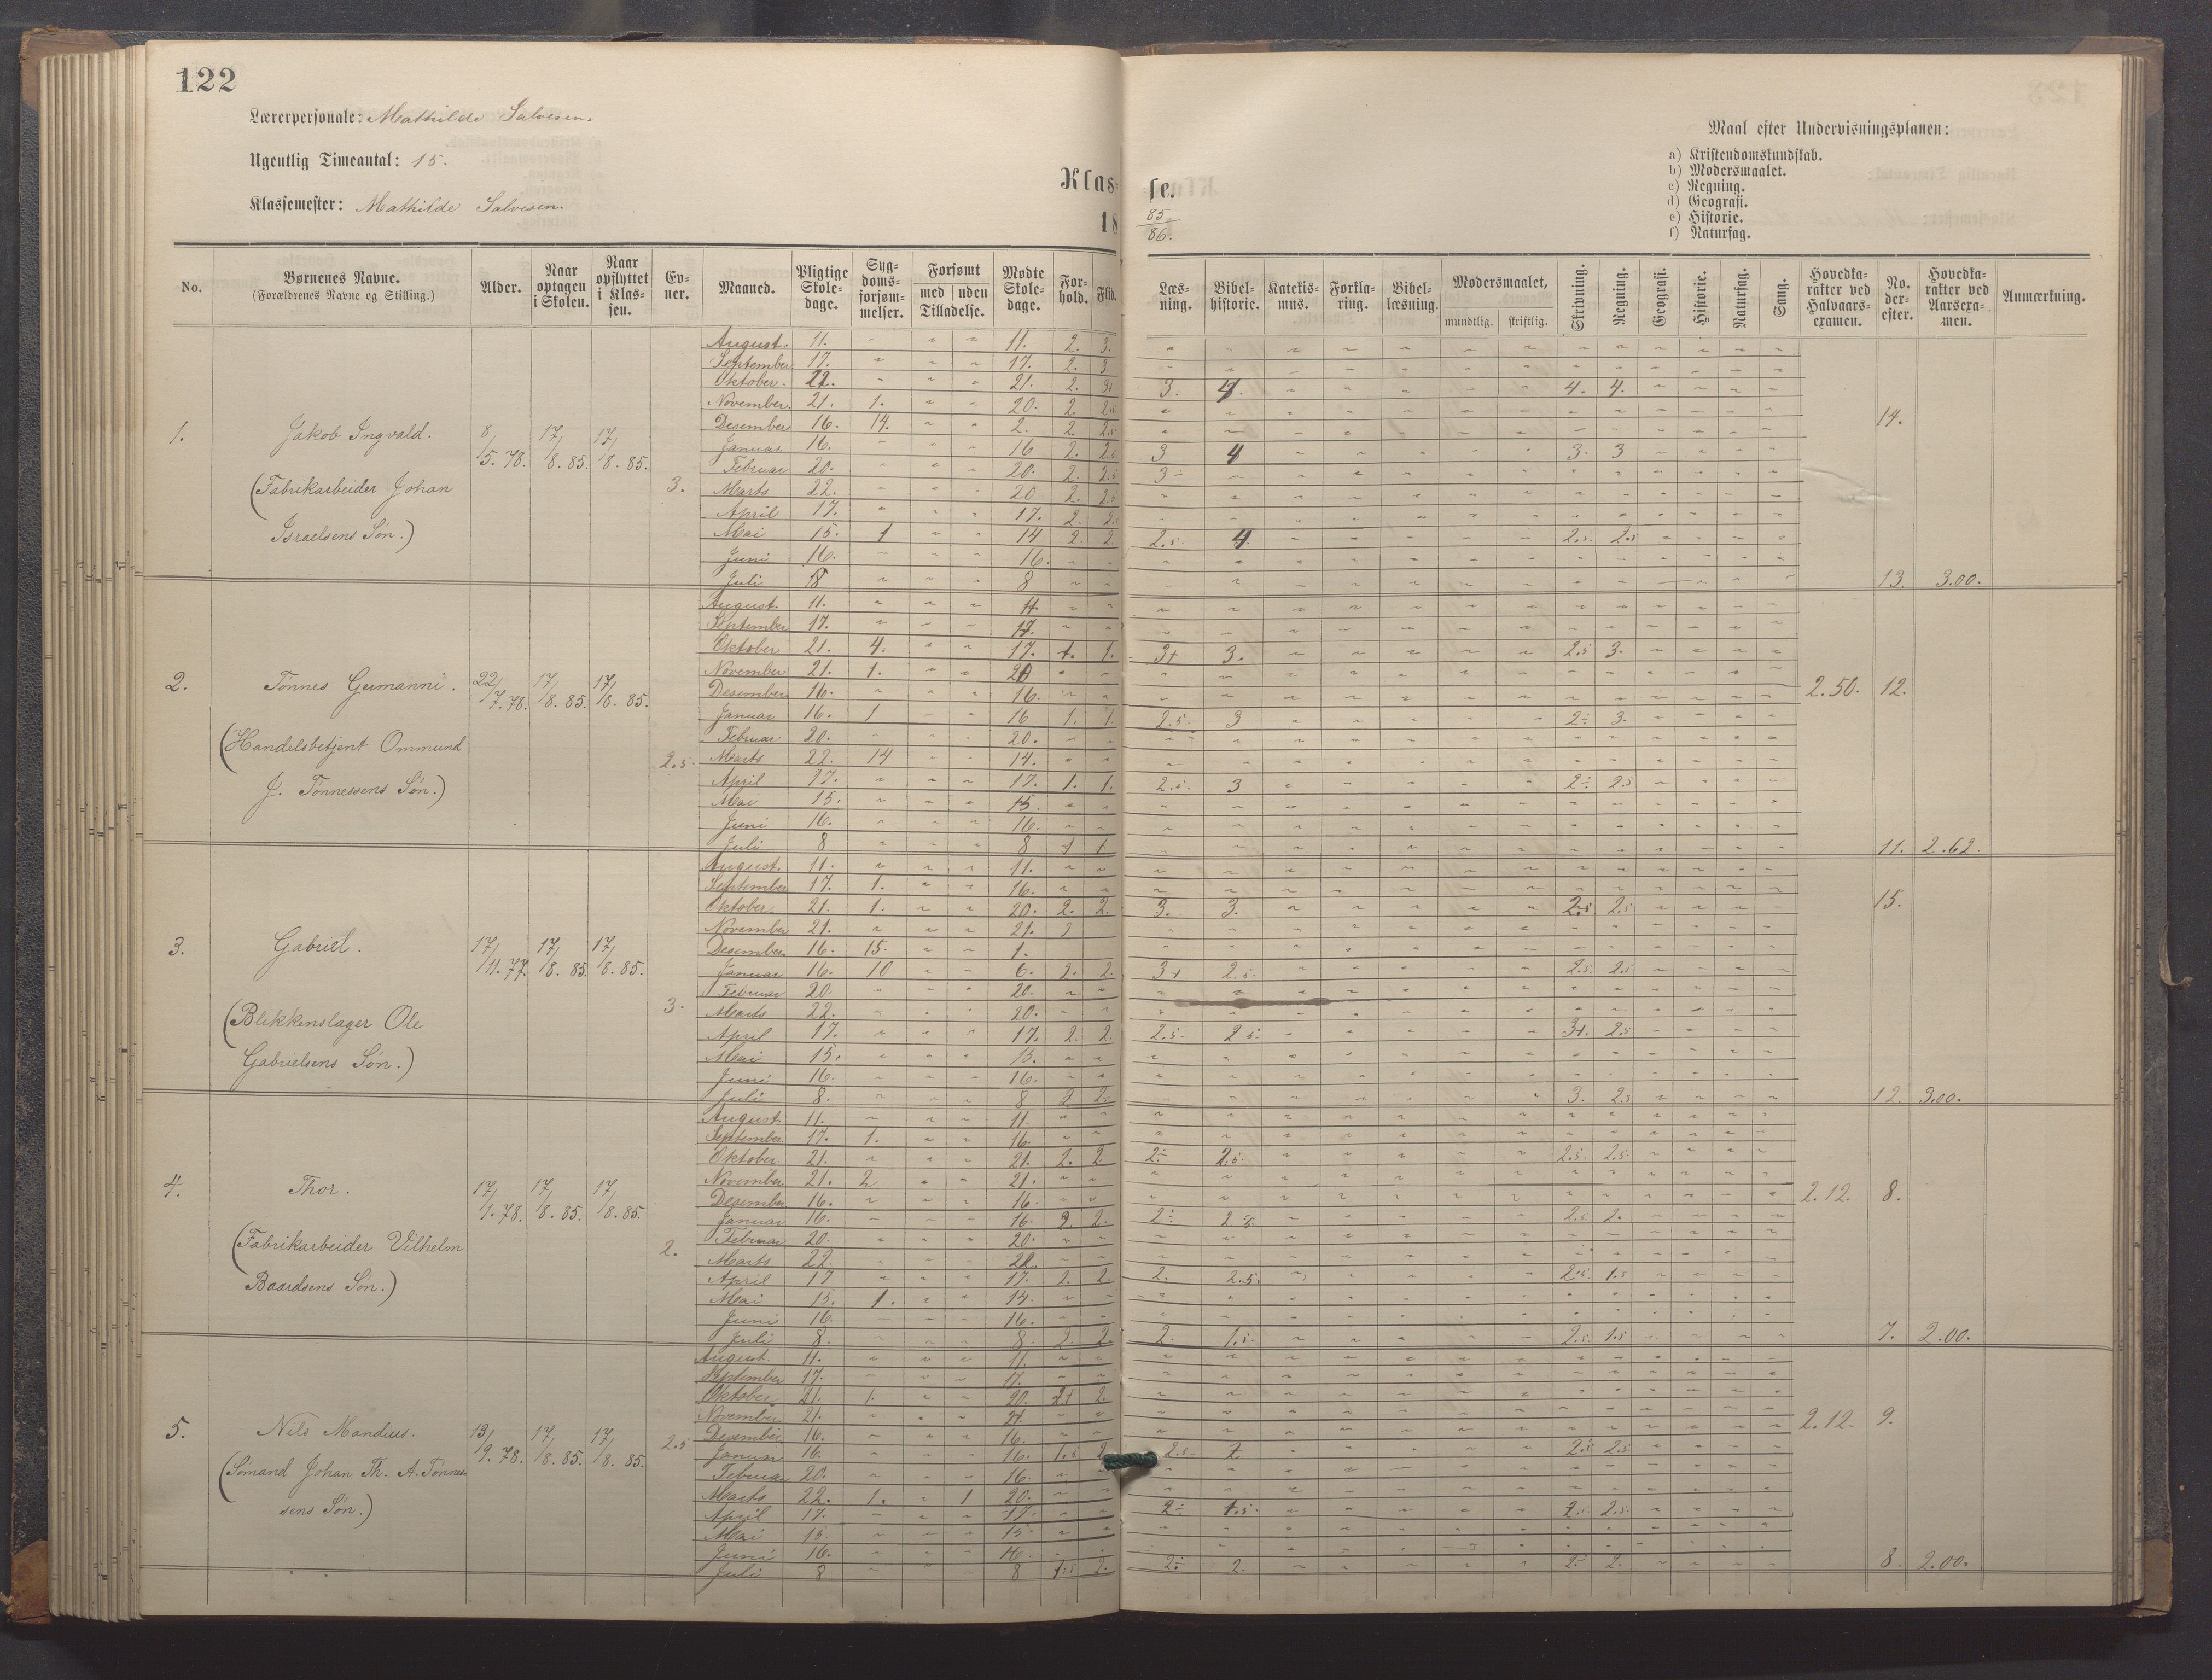 122
Lærerpersonale: Mathilde Salvesen.
Ugentlig Timeantal: 15.
Klassemester: Mathilde Salvesen.
Klasse.
18 85/86.
Maal efter Undervisningsplanen:
a) Kristendomskundskab.
b) Modersmaalet.
c) Regning.
d) Geografi.
e) Historie.
f) Naturfag.
No. | Børnenes Navne. (Forældrenes Navne og Stilling.) | Alder. | Naar optagen i Skolen. | Naar opflyttet i Klassen. | Evner. | Maaned. | Pligtige Skoledage. | Sygdomsforsømmelser. | Forsømt med Tilladelse. | uden Tilladelse. | Mødte Skoledage. | Forhold. | Flid. | Læsning. | Bibelhistorie. | Katekismus. | Forklaring. | Bibellæsning. | Modersmaalet, mundtlig. | skriftlig. | Skrivning. | Regning. | Geografi. | Historie. | Naturfag. | Sang. | Hovedkarakter ved Halvaarsexamen. | No. derefter. | Hovedkarakter ved Aarsexamen. | Anmærkning.
1. Jakob Ingvald. 8/5.78. 17/8.85. 17/8.85. 3.
(Fabrikarbeider Johan
Israelsens Søn.)
August. 11. 11. 2. 3.
September 17. 17. 2. 3
Oktober. 22. 21. 2. 3. 4. 4. 4.
November. 21. 1. 20. 2.
Desember 16. 14. 2. 2. 2.5 14.
Januar 16. 16 2. 2.5 3 4 3. 3
Februar 20. 20. 2. 2.5 3÷
Marts 22. 20 2. 2.5
April 17. 17. 2.
Mai 15. 1 14 2. 2. 2.5. 4. 2.5. 2.5
Juni 16. 16.
Juli 8 8 13. 3.00.
2. Tønnes Germanni. 22/7.78. 17/8.85. 17/8.85. 2.5
(Handelsbetjent Ommund
J. Tønnessens Søn.)
August. 11. 11
September 17. 17.
Oktober 21. 4. 17. 1. 1. 3+ 3. 2.5 3.
November 21. 1. 20
Desember 16. 16. 2.50. 12.
Januar 16. 1 16 1. 1. 2.5 3 2÷ 3.
Februar 20. 20.
Marts 22. 14 14.
April 17. 17. 1. 1. 2.5. 3 2÷ 2.5
Mai 15. 15.
Juni 16. 16.
Juli 8 8 1 1 11. 2.62.
3. Gabriel. 17/11.77. 17/8.85. 17/8.85. 3.
(Blikkenslager Ole
Gabrielsens Søn.)
August. 11. 11.
September 17. 1. 16.
Oktober. 21. 1. 20. 2. 2. 3. 3. 2.5 2.5 15.
November 21. 21.
Desember. 16. 15. 1.
Januar 16. 10 6. 2. 2. 3+ 2.5. 2.5. 2.5
Februar 20. 20.
Marts 22. 20.
April 17. 17. 2. 2. 2.5. 2.5. 3+. 2.5
Mai 15. 15.
Juni 16. 16.
Juli 8. 8 2 2. 3. 2.5 12. 3.00.
4. Thor. 17/1.78. 17/8.85. 17/8.85. 2.
(Fabrikarbeider Vilhelm
Baardsens Søn.)
August. 11. 11.
September 17. 1. 16.
Oktober 21. 21. 2. 2 2÷ 2.5. 2.5. 2.5.
November 21. 2 21.
Desember 16. 16. 2.12. 8.
Januar 16. 16. 2. 2. 2÷ 2.5. 2.
Februar 20. 20.
Marts 22. 22.
April 17 17. 2. 2. 2. 2.5. 2.5 1.5
Mai 15. 1. 14.
Juni 16. 16.
Juli 8. 8. 2. 2. 2. 1.5. 2.5. 1.5 7. 2.00.
5. Nils Mandius. 13/9.78. 17/8.85. 17/8.85. 2.5
(Sømand Johan Th. A. Tønnes-
sens Søn.)
August. 11. 11.
September 17. 17.
Oktober 21. 1. 20. 2.
November 21. 21
Desember 16. 16. 2.12. 9.
Januar 16. 16. 1.5 2. 2.5. 2.5 2.5
Februar 20. 16.
Marts 22. 1. 1 20.
April 17. 17 2÷ 1.5. 2.5
Mai 15. 15.
Juni 16. 16.
Juli 8 8 1.5 2. 2÷ 2. 2÷ 2. 8. 2.00.